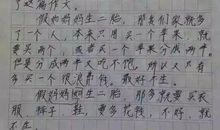 了这篇作文。
假如妈妈生二胎，那我们家就多
了一个人，本来只用买一个苹果，就
要买两个，或者买一个苹果分成两半。
但是分成两半又吃不饱，所以又得
多买一个很浪费钱。最好不生。
假如妈妈生二胎，那多就要买衣
服，裤子，鞋，要多花钱，不好，就
不生。